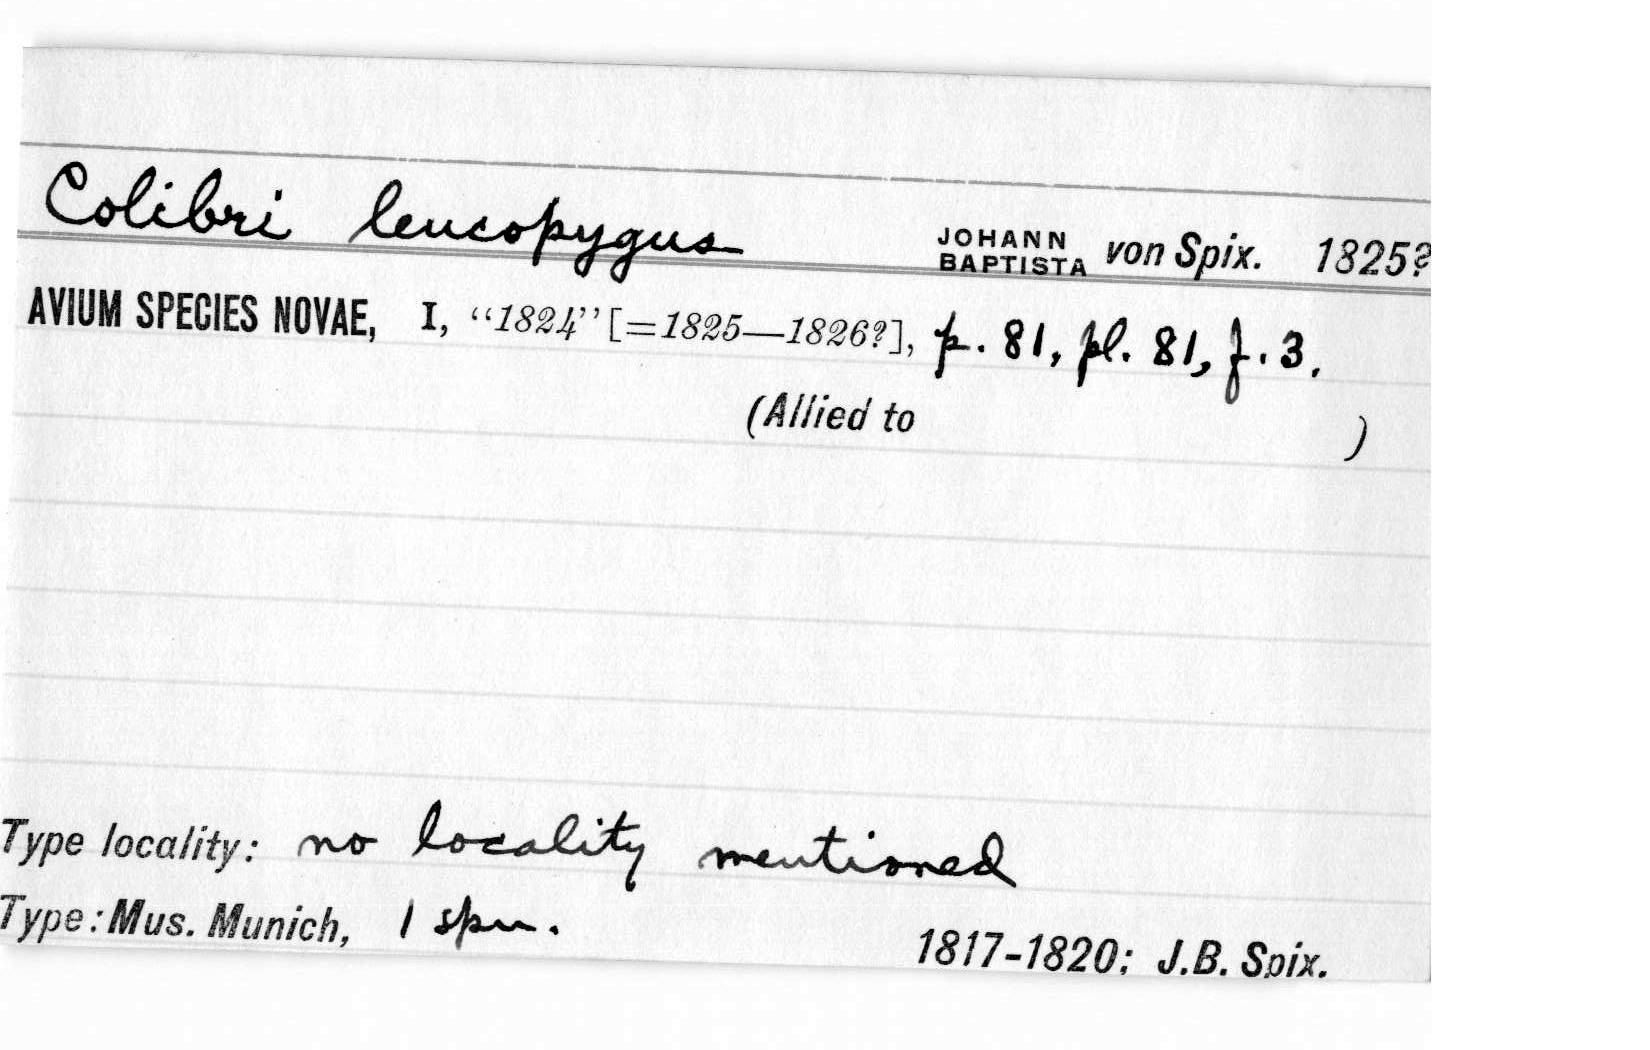 Colibri leucopygus JOHANN BAPTISTA von Spix. 1825?
AVIUM SPECIES NOVAE, I, "1824" [=1825—1826?], p. 81, pl. 81, f. 3.
(Allied to )
Type locality: no locality mentioned
Type: Mus. Munich, 1 spm.
1817-1820; J.B. Spix.